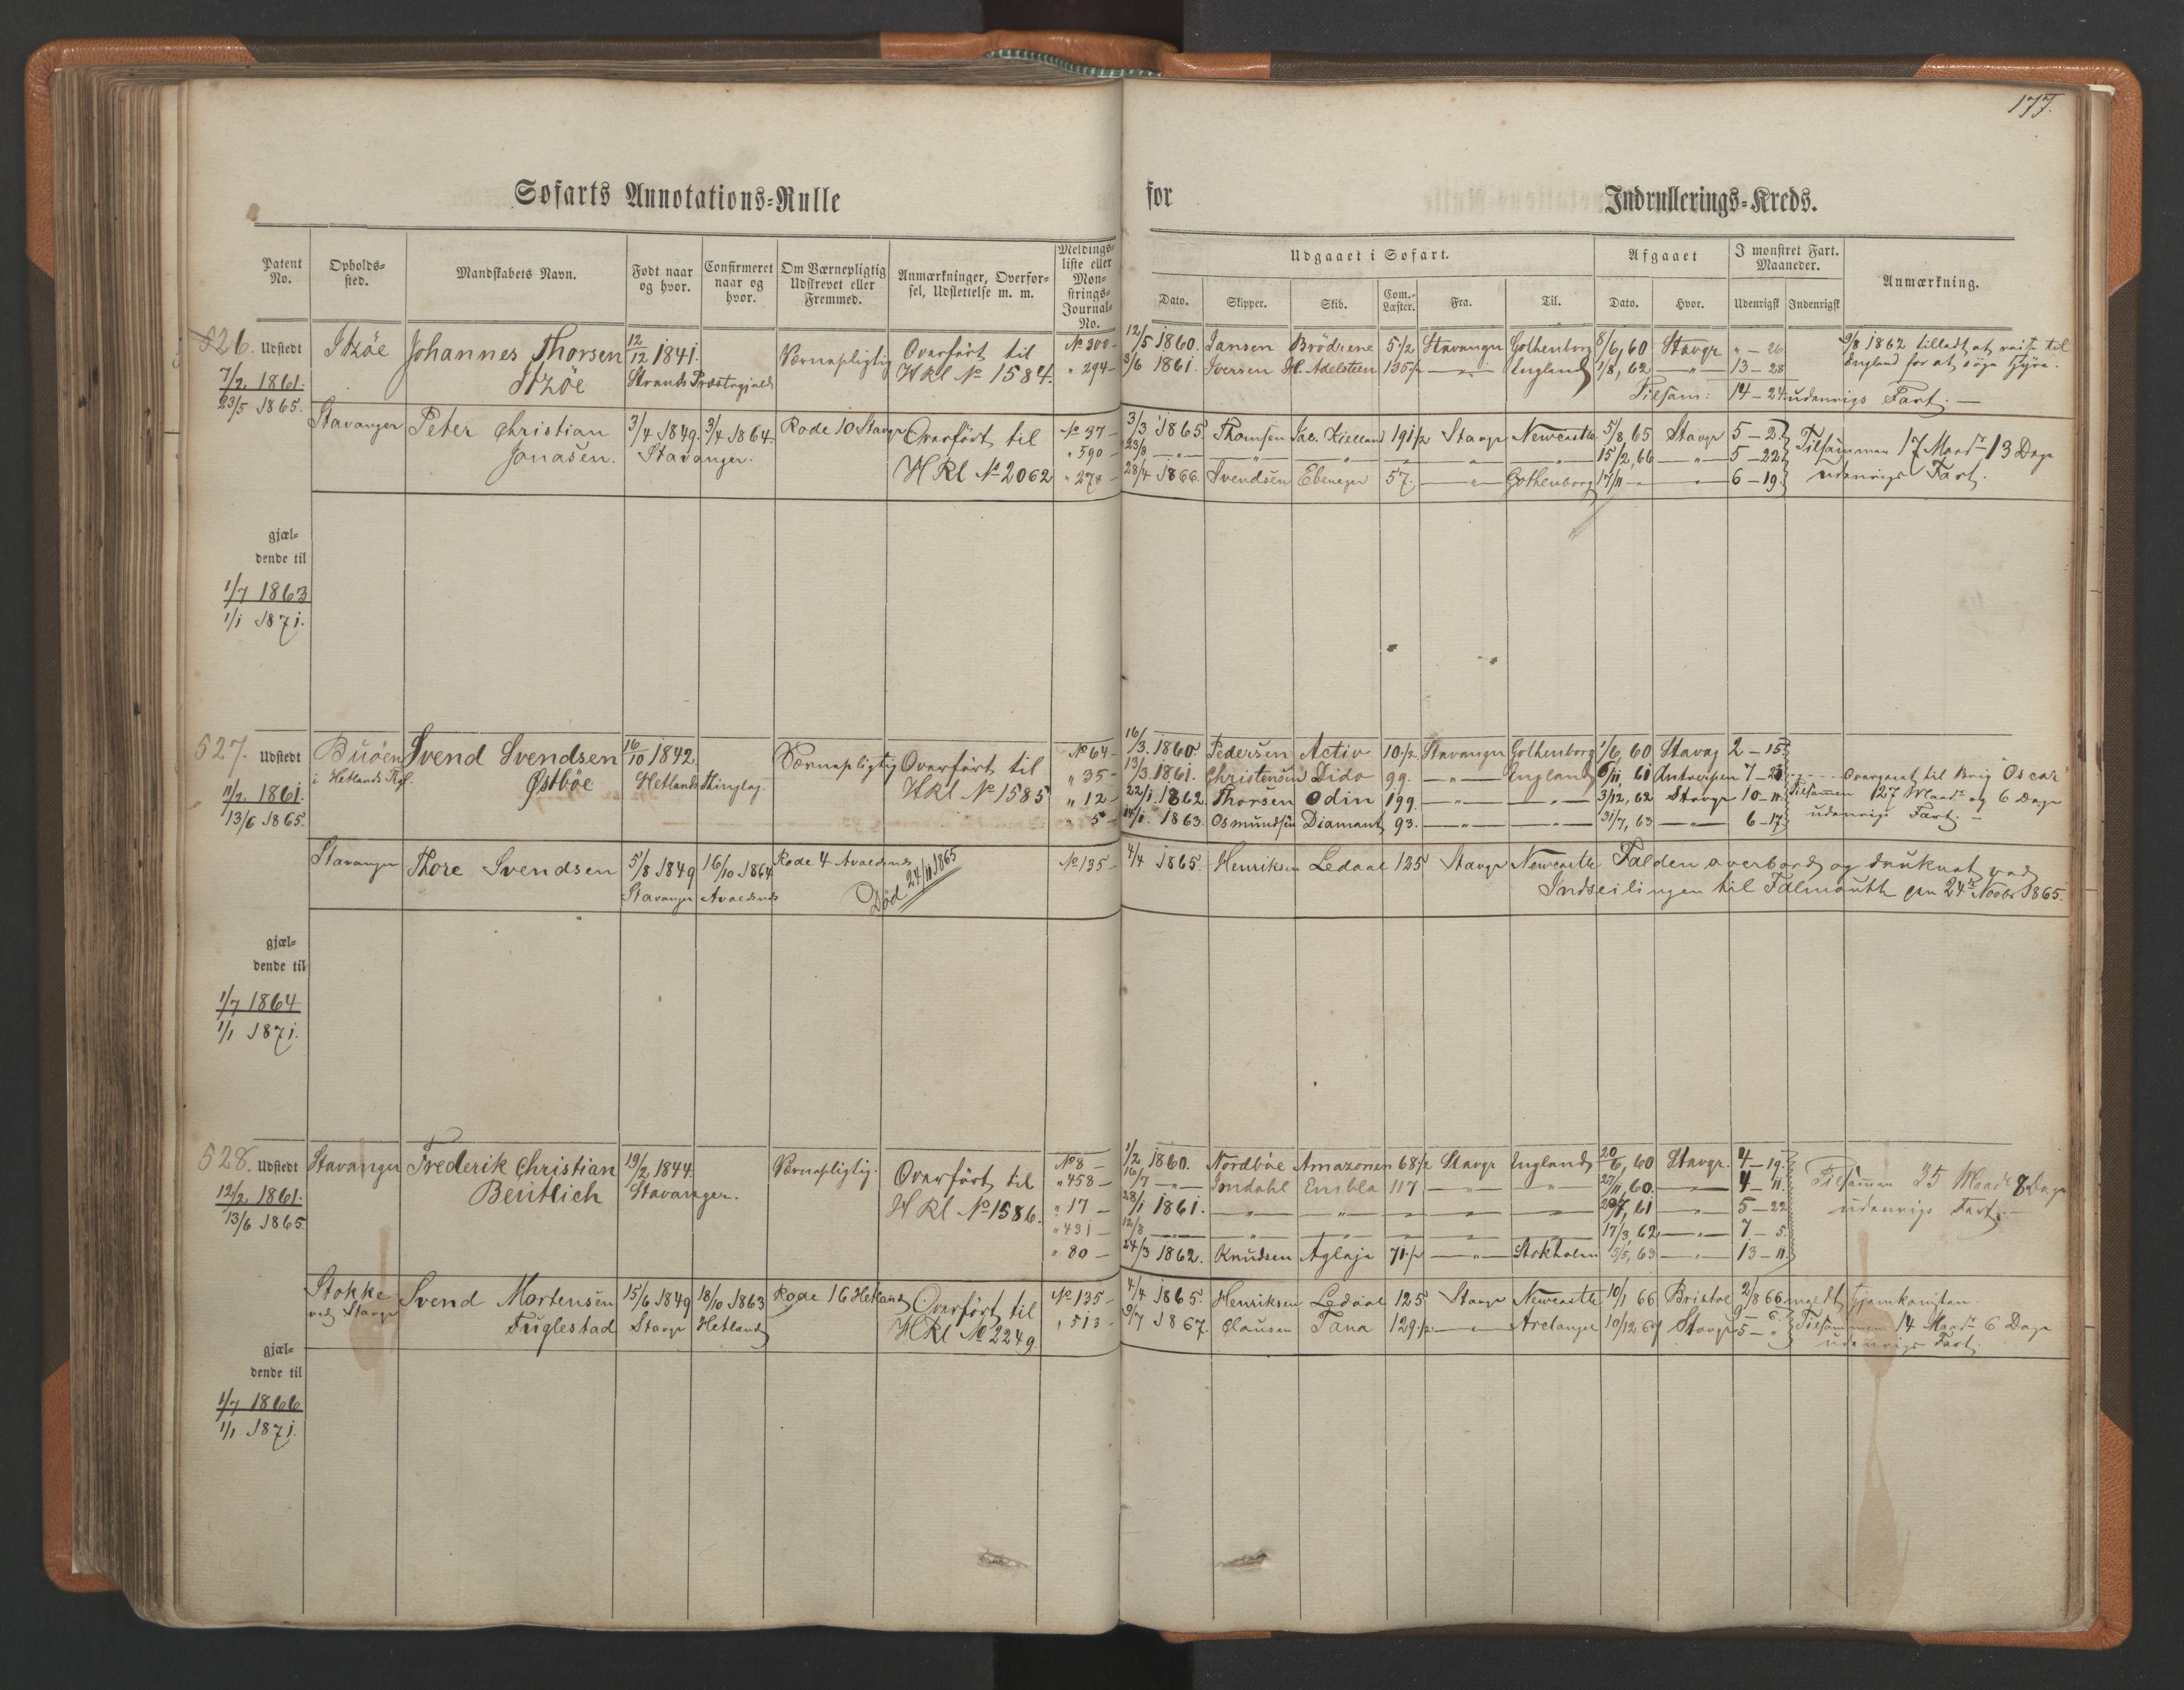 177.
Søfarts Annotations-Rulle for Indrullerings-Kreds.
Patent No.
Opholds-sted.
Mandskabets Navn.
Født naar og hvor.
Confirmeret naar og hvor.
Om Værnepligtig Udskrevet eller Fremmed.
Anmærkninger, Overfør-sel, Udslettelse m. m.
Meldings-liste eller Mon-strings-Journal-No.
Udgaaet i Søfart.
Dato. Skipper. Skib. Com.-Læster. Fra. Til.
Afgaaet
Dato. Hvor.
I mønstret Fart. Maaneder.
Udenrigsk Indenrigsk
Anmærkning.
526. Udstedt
7/2 1861.
23/5 1865.
gjæl-
dende til
1/7 1863
1/1 1871.
Johannes Thorsen 12/12 1841. Værnepligtig Overført til No 300 - 12/5 1860. Jansen Brødrene 5 1/2 Stavanger Gothenborg 8/6, 60 Stavgr " - 26 9/8 1862 tilladt at reise til
Strands Præstegjæld HRl No 1584. " 294 - 3/6 1861. Iversen H. Adelsteen 135 1/2 — " — England 1/8, 62 — " — 13 - 28 England for at søge Hyre.
Tilsam: 14 - 24 udenrigs Fart. —
Stavanger Peter Christian 3/4 1849. 3/4 1864. Rode 10 Stavgr Overført til No 37 - 3/3 1865 Thomsen Jac. Kielland 191 1/2 Stavgr Newcastle 5/8, 65 Stavgr 5 - 2 Tilsammen 17 Maadr 13 Dage
Jonasen. Stavanger. " 590 - 23/8 — " — 15/2, 66 — " — 5 - 22
HRl No 2062 " 278 - 28/4 1866. Svendsen Ebenezer 57. — " — Gothenborg 17/11 — " — 6 - 19. udenrigs Fart.
527. Udstedt
11/2 1861.
13/6 1865.
gjæl-
dende til
1/7 1864
1/1 1871.
Buøen Svend Svendsen 16/10 1842 Værnepligtig Overført til No 64 - 16/3 1860 Pedersen Activ 10 1/2 Stavanger Gothenborg 1/6, 60 Stavag 2 - 15
i Hetlands Østbøe Hetlands Thinglag. HRl No 1585 " 35 - 13/3 1861. Christensen Dido 99. — " — England 6/11, 61 Antverpen 7 - 23 Overgaaet til Brig "Oscar"
" 12 - 22/1 1862 Thorsen Odin 199. — " — 3/12, 62 Stavgr 10 - 11 Tilsammen 27 Maadr og 6 Dage
" 5 - 14/1 1863 Osmundsen Diamant 93. — " — 31/7, 63 — " — 6 - 17 udenrigs Fart. —
Stavanger Thore Svendsen 5/8 1849 16/10 1864 Rode 4 Avaldsnes No 135 - 4/4 1865. Henriksen Ledaal 125 Stavgr Newcastle Falden overbord og druknet ved
Stavanger Avaldsnes Død 24/11 1865 Indseilingen til Falmouth den 24de Novbr 1865.
528. Udstedt
12/2 1861.
13/6 1865.
gjæl-
dende til
1/7 1866
1/1 1871.
Stavanger Frederik Christian 19/2 1844. Værnepligtig. Overført til No 8 - 1/2 1860. Nordbøe Amazonen 68 1/2 Stavgr England 20/6, 60 Stavgr. 4 - 19. Tilsammen 35 Maadr 8 Dage
Bentlich Stavanger. HRl No 1586. " 458 - 16/7 — " — Emdahl Embla 117 — " — 27/11, 60. — " — 4 - 11. udenrigs Fart. —
" 17 - 28/1 1861. — " — 20/7, 61 — " — 5 - 22
" 431 - 12/8 — " — 17/3, 62 — " — 7 - 5.
" 80 - 24/3 1862. Knudsen Aglaja 71 1/2 — " — Stokholm 15/5, 63 — " — 13 - 11
Stokke Svend Mortensen 15/6 1849 18/10 1863 Rode 16 Hetland Overført til No 135 - 4/4 1865. Henriksen Ledaal 125 Stavgr Newcastle 10/1 66 Bristol 2/8 66 meldt hjemkommen
ved Stavgr Fuglestad Stavgr Hetland HRl No 2249. " 513 - 9/7 1867. Clausen Tana 129 1/2 — " — Archangel 10/12 67 Stavgr 5 - " Tilsammen 14 Maadr 6 Dage
udenrigs Fart.